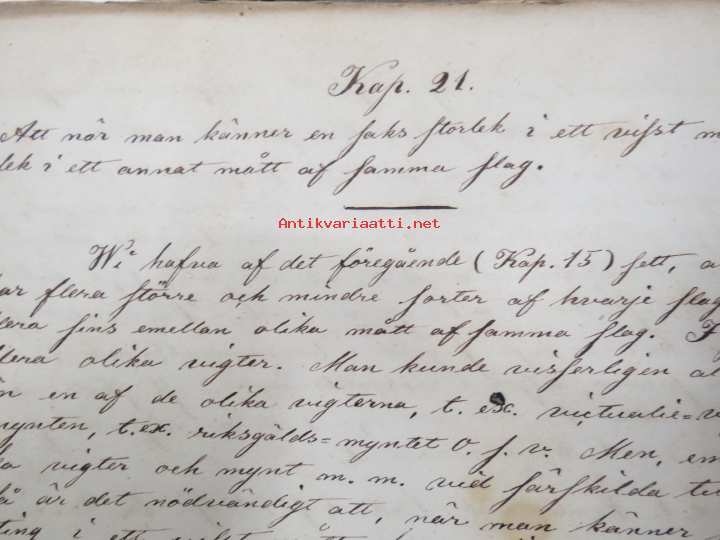 Kap. 21.
Att når man känner en saks storlek i ett visst m
lek i ett annat mått af samma slag.
Antikvariaatti.net
Wi hafva af det föregående (Kap. 15) sett, a
ar flera större och mindre sorter af hvarje slag
lera sins emellan olika mått af samma slag. F
lera olika vigter. Man kunde visserligen al
n en af de olika vigterna, t. ex. victualie=v
mynten, t. ex. riksgälds=myntet o. s. v. Men, em
la vigter och mynt m. m. vid särskilda ti
å är det nödvändigt att, når man känner
ting i ett visst mått